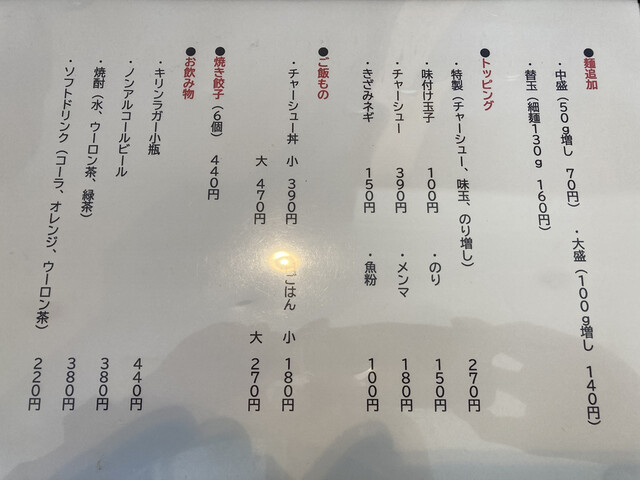 ●麺追加
・中盛（５０ｇ増し　７０円）　・大盛（１００ｇ増し　１４０円）
・替玉（細麺１３０ｇ　１６０円）
●トッピング
・特製（チャーシュー、味玉、のり増し）　２７０円
・味付け玉子　１００円　・のり　１５０円
・チャーシュー　３９０円　・メンマ　１８０円
・きざみネギ　１５０円　・魚粉　１００円
●ご飯もの
・チャーシュー丼　小　３９０円　ごはん　小　１８０円
大　４７０円　大　２７０円
●焼き餃子（６個）　４４０円
●お飲み物
・キリンラガー小瓶　４４０円
・ノンアルコールビール　３８０円
・焼酎（水、ウーロン茶、緑茶）　３８０円
・ソフトドリンク（コーラ、オレンジ、ウーロン茶）　２２０円